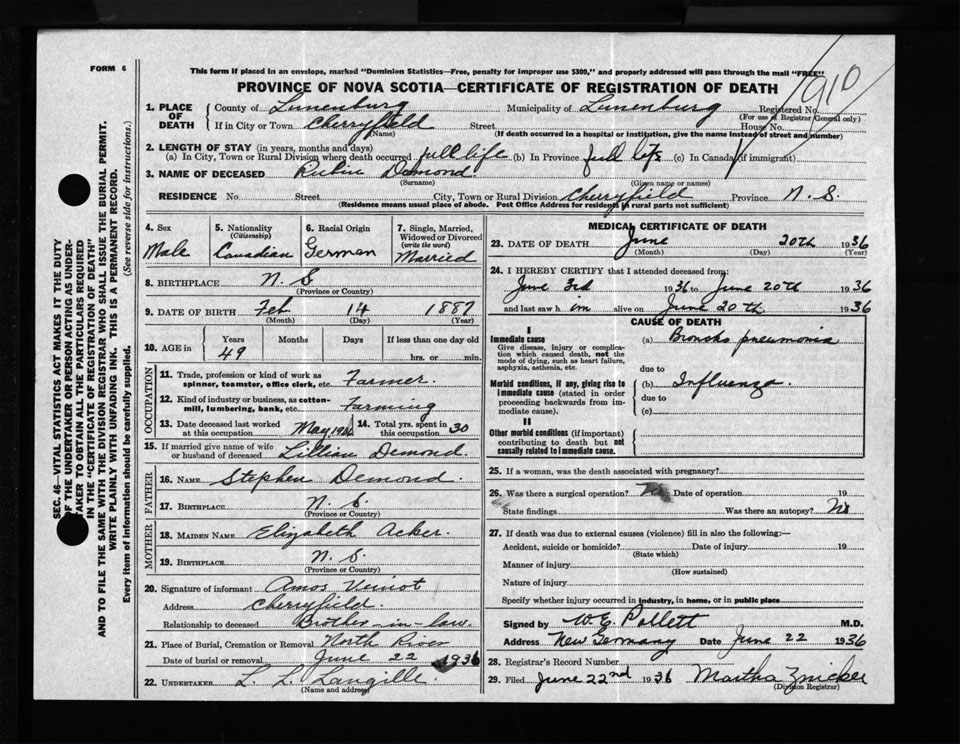 FORM 6
This form if placed in an envelope, marked "Dominion Statistics—Free, penalty for improper use $300," and properly addressed will pass through the mail "FREE"
PROVINCE OF NOVA SCOTIA—CERTIFICATE OF REGISTRATION OF DEATH
910
1. PLACE OF DEATH
County of Lunenburg Municipality of Lunenburg Registered No.
(For use of Registrar General only)
If in City or Town Cherryfield Street House No.
(Name) (If death occurred in a hospital or institution, give the name instead of street and number)
2. LENGTH OF STAY (in years, months and days)
(a) In City, Town or Rural Division where death occurred full life (b) In Province full life (c) In Canada (if immigrant)
3. NAME OF DECEASED Rubin Demond
(Surname) (Given name or names)
RESIDENCE No. Street City, Town or Rural Division Cherryfield Province N. S.
(Residence means usual place of abode. Post Office Address for residents in rural parts not sufficient)
4. Sex Male
5. Nationality (Citizenship) Canadian
6. Racial Origin German
7. Single, Married, Widowed or Divorced (write the word) Married
8. BIRTHPLACE N. S
(Province or Country)
9. DATE OF BIRTH Feb. 14 1887
(Month) (Day) (Year)
10. AGE in Years Months Days If less than one day old
49 hrs. or min.
OCCUPATION
11. Trade, profession or kind of work as spinner, teamster, office clerk, etc. Farmer.
12. Kind of industry or business, as cotton-mill, lumbering, bank, etc. Farming
13. Date deceased last worked at this occupation May 1936
14. Total yrs. spent in this occupation 30
15. If married give name of wife or husband of deceased Lillian Demond.
FATHER
16. NAME Stephen Demond.
17. BIRTHPLACE N. S.
(Province or Country)
MOTHER
18. MAIDEN NAME Elizabeth Acker.
19. BIRTHPLACE N. S.
(Province or Country)
20. Signature of informant Amos Veinot
Address Cherryfield.
Relationship to deceased Brother-in-law.
21. Place of Burial, Cremation or Removal North River
Date of burial or removal June 22 1936
22. UNDERTAKER L. L. Langille.
(Name and address)
MEDICAL CERTIFICATE OF DEATH
23. DATE OF DEATH June 20th 1936
(Month) (Day) (Year)
24. I HEREBY CERTIFY that I attended deceased from:
June 3rd 1936 to June 20th 1936
and last saw him alive on June 20th 1936
CAUSE OF DEATH
I
Immediate cause
Give disease, injury or complication which caused death, not the mode of dying, such as heart failure, asphyxia, asthenia, etc.
(a) Broncho pneumonia
due to
Morbid conditions, if any, giving rise to immediate cause (stated in order proceeding backwards from immediate cause).
(b) Influenza.
due to
(c)
II
Other morbid conditions (if important) contributing to death but not causally related to immediate cause.
25. If a woman, was the death associated with pregnancy?
26. Was there a surgical operation? No Date of operation 19
State findings Was there an autopsy? No
27. If death was due to external causes (violence) fill in also the following:—
Accident, suicide or homicide? Date of injury 19
(State which)
Manner of injury
(How sustained)
Nature of injury
Specify whether injury occurred in industry, in home, or in public place
Signed by W. E. Pollett M.D.
Address New Germany Date June 22 1936
28. Registrar's Record Number
29. Filed June 22nd 1936 Martha Zwicker
(Division Registrar)
SEC. 46—VITAL STATISTICS ACT MAKES IT THE DUTY
OF THE UNDERTAKER OR PERSON ACTING AS UNDER-
TAKER TO OBTAIN ALL THE PARTICULARS REQUIRED
IN THE "CERTIFICATE OF REGISTRATION OF DEATH"
AND TO FILE THE SAME WITH THE DIVISION REGISTRAR WHO SHALL ISSUE THE BURIAL PERMIT.
WRITE PLAINLY WITH UNFADING INK. THIS IS A PERMANENT RECORD.
Every item of information should be carefully supplied. (See reverse side for instructions.)